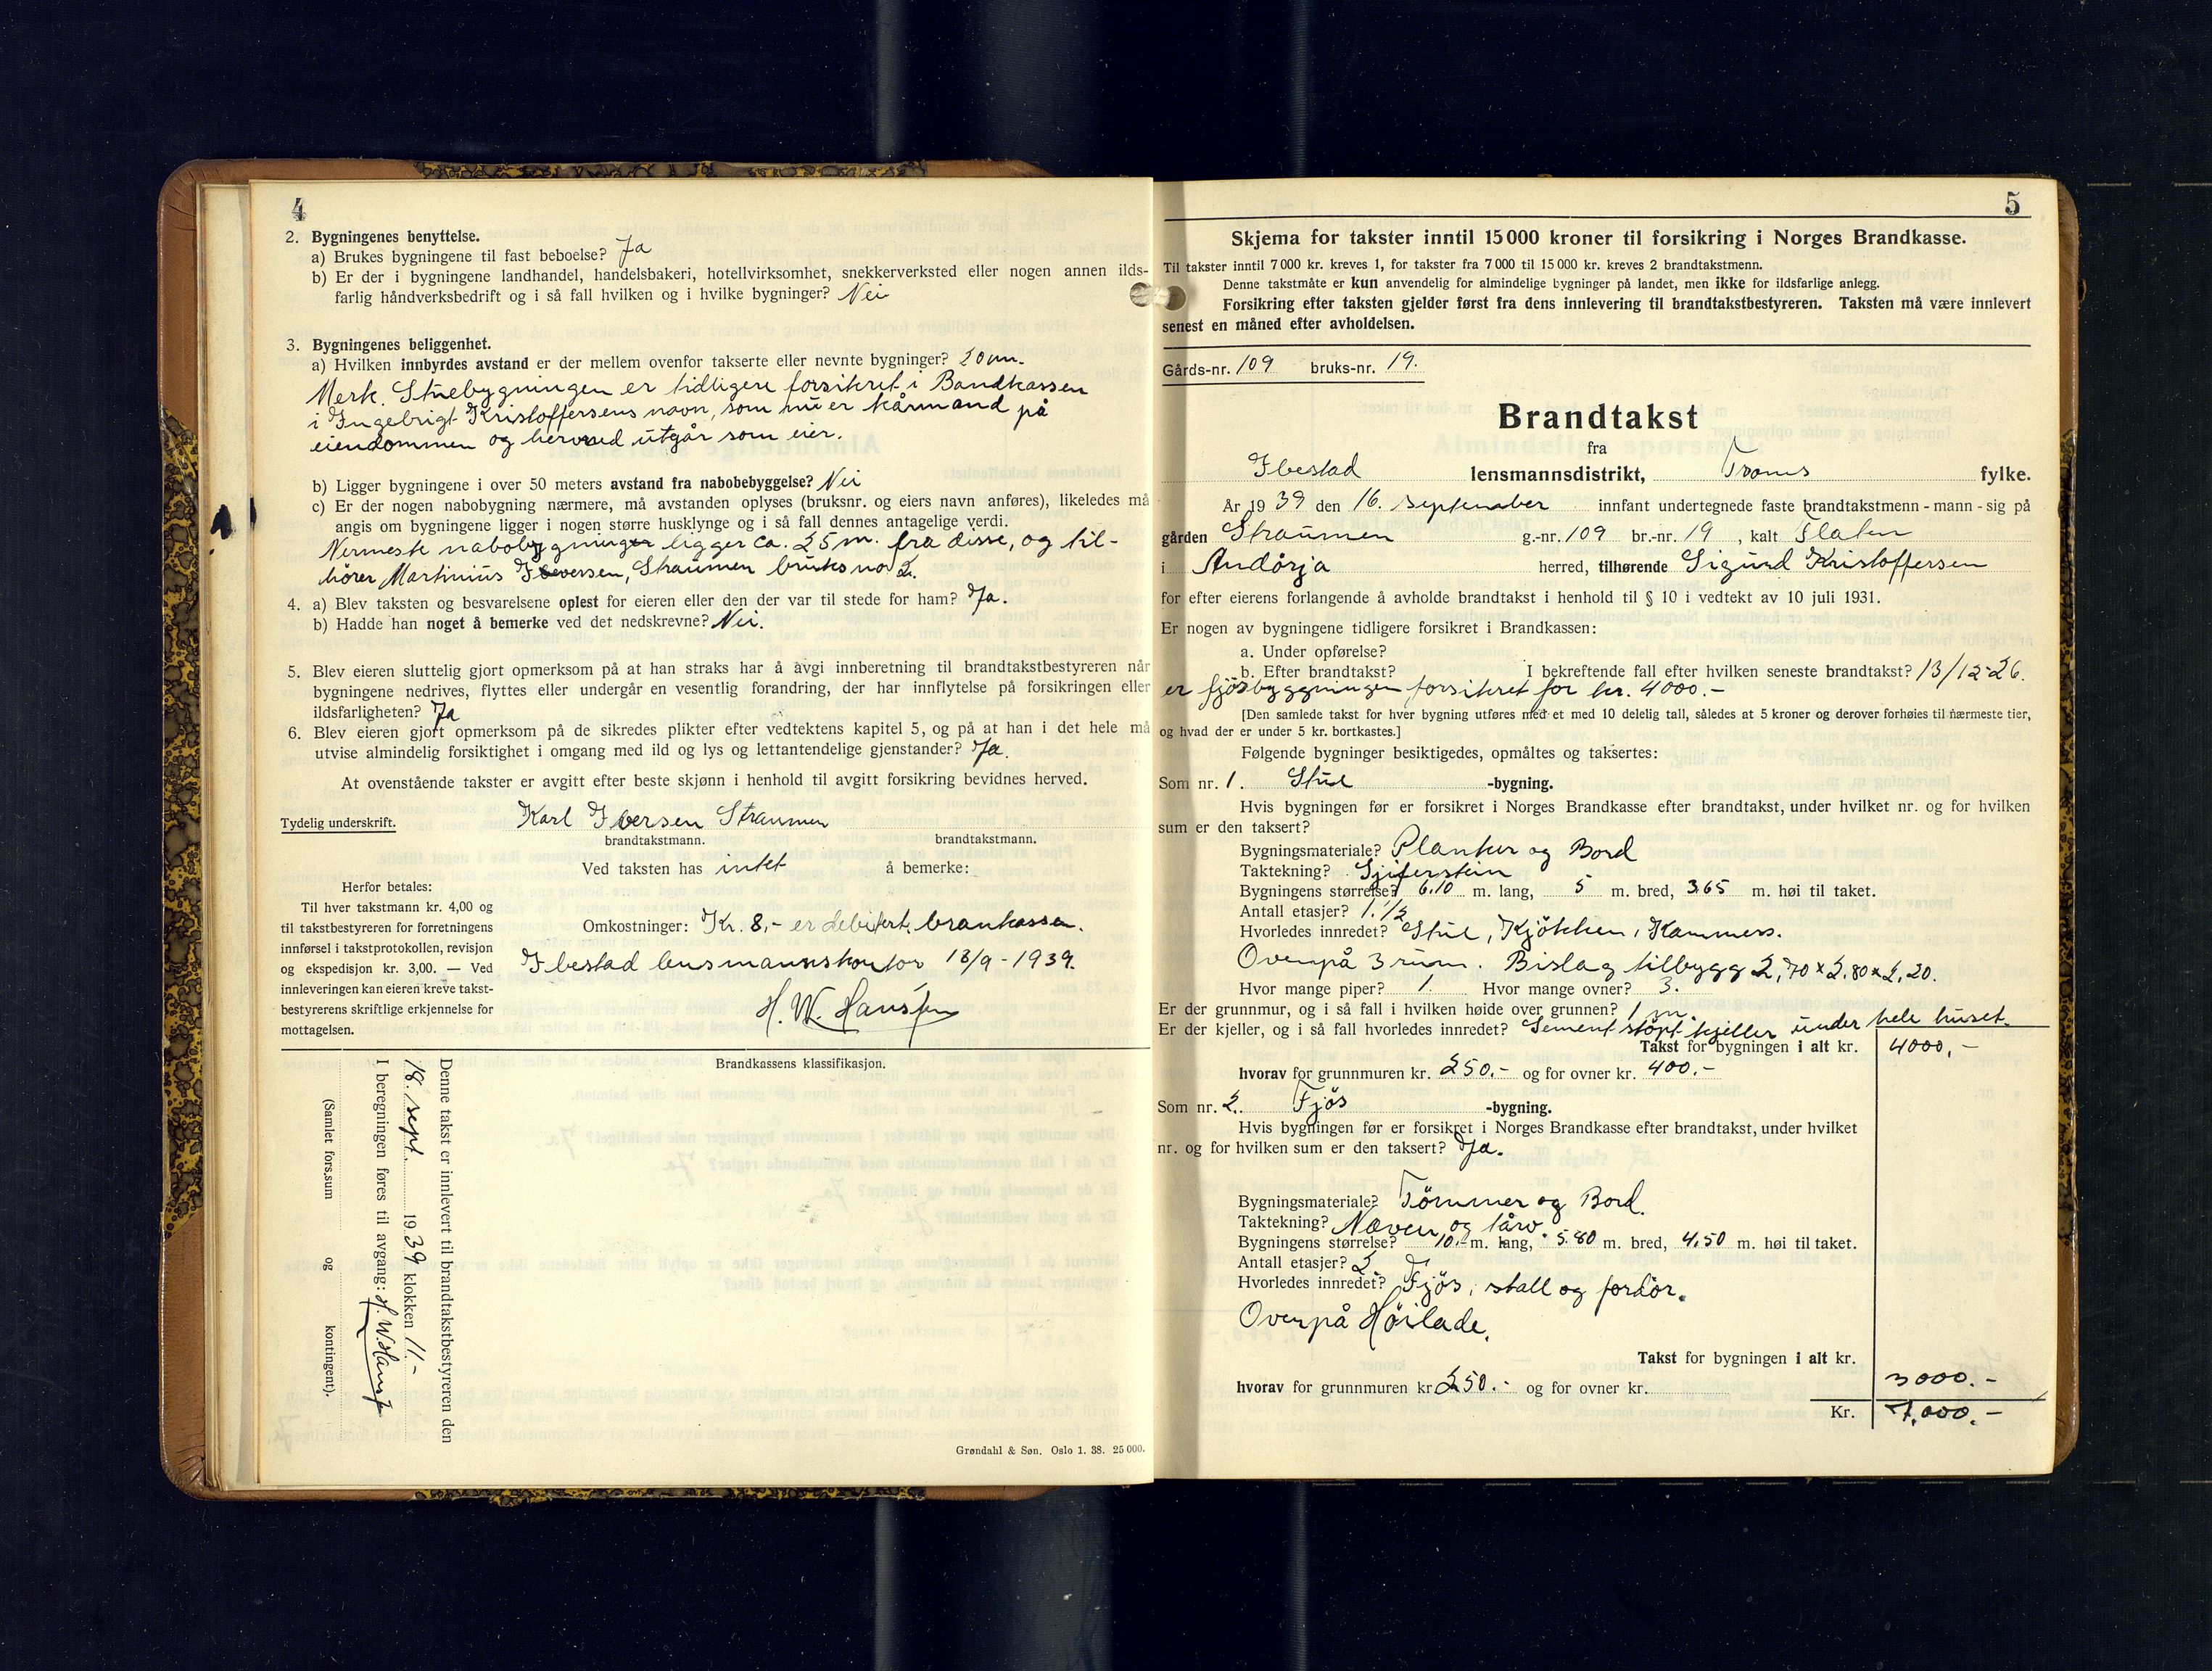 4
2. Bygningenes benyttelse.
a) Brukes bygningene til fast beboelse? Ja
b) Er der i bygningene landhandel, handelsbakeri, hotellvirksomhet, snekkerverksted eller nogen annen ilds-
farlig håndverksbedrift og i så fall hvilken og i hvilke bygninger? Nei
3. Bygningenes beliggenhet.
a) Hvilken innbyrdes avstand er der mellem ovenfor takserte eller nevnte bygninger? 20 m.
Merk. Stuebygningen er tidligere forsikret i Bandkassen
i Ingebrigt Kristoffersens navn, som nu er kårmand på
eiendommen og herved utgår som eier.
b) Ligger bygningene i over 50 meters avstand fra nabobebyggelse? Nei
c) Er der nogen nabobygning nærmere, må avstanden oplyses (bruksnr. og eiers navn anføres), likeledes må
angis om bygningene ligger i nogen større husklynge og i så fall dennes antagelige verdi.
Nermeste nabobygninger ligger ca. 25 m. fra disse, og til-
hører Martinius Iversen, Straumen bruksno 2.
4. a) Blev taksten og besvarelsene oplest for eieren eller den der var til stede for ham? Ja.
b) Hadde han noget å bemerke ved det nedskrevne? Nei.
5. Blev eieren sluttelig gjort opmerksom på at han straks har å avgi innberetning til brandtakstbestyreren når
bygningene nedrives, flyttes eller undergår en vesentlig forandring, der har innflytelse på forsikringen eller
ildsfarligheten? Ja
6. Blev eieren gjort opmerksom på de sikredes plikter efter vedtektens kapitel 5, og på at han i det hele må
utvise almindelig forsiktighet i omgang med ild og lys og lettantendelige gjenstander? Ja.
At ovenstående takster er avgitt efter beste skjønn i henhold til avgitt forsikring bevidnes herved.
Tydelig underskrift. Karl Iversen Straumen
brandtakstmann. brandtakstmann.
Ved taksten has intet å bemerke:
Herfor betales:
Til hver takstmann kr. 4,00 og
til takstbestyreren for forretningens
innførsel i takstprotokollen, revisjon
og ekspedisjon kr. 3,00. — Ved
innleveringen kan eieren kreve takst-
bestyrerens skriftlige erkjennelse for
mottagelsen.
Omkostninger: Kr. 8,- er debitert brankassen.
Ibestad lensmannskontor 18/9 - 1939.
H. W. Hansen
Brandkassens klassifikasjon.
Denne takst er innlevert til brandtakstbestyreren den
18. sept. 1939 klokken 11.-
I beregningen føres til avgang: H. W. Hansen
(Samlet fors.sum og kontingent).
Grøndahl & Søn. Oslo 1. 38. 25 000.
5
Skjema for takster inntil 15 000 kroner til forsikring i Norges Brandkasse.
Til takster inntil 7 000 kr. kreves 1, for takster fra 7 000 til 15 000 kr. kreves 2 brandtakstmenn.
Denne takstmåte er kun anvendelig for almindelige bygninger på landet, men ikke for ildsfarlige anlegg.
Forsikring efter taksten gjelder først fra dens innlevering til brandtakstbestyreren. Taksten må være innlevert
senest en måned efter avholdelsen.
Gårds-nr. 109 bruks-nr. 19.
Brandtakst
fra
Ibestad lensmannsdistrikt, Troms fylke.
År 1939 den 16. september innfant undertegnede faste brandtakstmenn - mann - sig på
gården Straumen g.-nr. 109 br.-nr. 19, kalt Flaten
i Andørja herred, tilhørende Sigurd Kristoffersen
for efter eierens forlangende å avholde brandtakst i henhold til § 10 i vedtekt av 10 juli 1931.
Er nogen av bygningene tidligere forsikret i Brandkassen:
a. Under opførelse?
b. Efter brandtakst? I bekreftende fall efter hvilken seneste brandtakst? 13/12-26.
er fjøsbyggningen forsikret for kr. 4000.-
[Den samlede takst for hver bygning utføres med et med 10 delelig tall, således at 5 kroner og derover forhøies til nærmeste tier,
og hvad der er under 5 kr. bortkastes.]
Følgende bygninger besiktigedes, opmåltes og taksertes:
Som nr. 1. Stue -bygning.
Hvis bygningen før er forsikret i Norges Brandkasse efter brandtakst, under hvilket nr. og for hvilken
sum er den taksert?
Bygningsmateriale? Planker og Bord
Taktekning? Sjiferstein
Bygningens størrelse? 6.10 m. lang, 5 m. bred, 3.65 m. høi til taket.
Antall etasjer? 1.1/2
Hvorledes innredet? Stue, Kjøkken, Kammers.
Ovenpå 3 rum. Bislag tilbygg 2,70 x 2.80 x 2,20.
Hvor mange piper? 1. Hvor mange ovner? 3.
Er der grunnmur, og i så fall i hvilken høide over grunnen? 1 m.
Er der kjeller, og i så fall hvorledes innredet? Sement støpt kjeller under hele huset.
Takst for bygningen i alt kr. 4000,-
hvorav for grunnmuren kr. 250.- og for ovner kr. 400.-
Som nr. 2. Fjøs -bygning.
Hvis bygningen før er forsikret i Norges Brandkasse efter brandtakst, under hvilket
nr. og for hvilken sum er den taksert? Ja.
Bygningsmateriale? Tømmer og Bord.
Taktekning? Næver og tårv.
Bygningens størrelse? 10.- m. lang, 5.80 m. bred, 4,50 m. høi til taket.
Antall etasjer? 2
Hvorledes innredet? Fjøs, stall og fordør.
Ovenpå Høilade.
Takst for bygningen i alt kr.
hvorav for grunnmuren kr 250.- og for ovner kr. 3000.-
Kr. 7,000.-